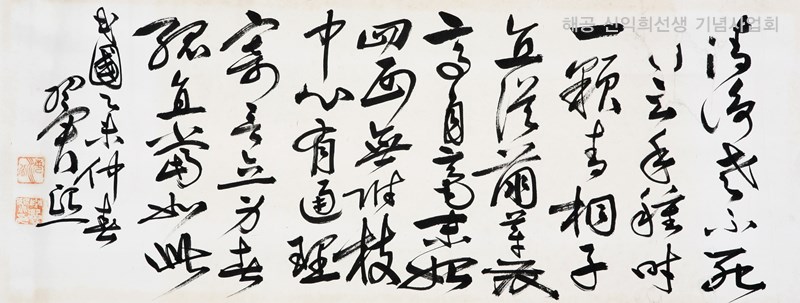 해공 신익희선생 기념사업회
清淨老不死
自云手種時
一顆青桐子
直從萌芽拔
高自毫末始
四面無附枝
中心有通理
寄言立身者
孤直當如此
民國乙未仲春